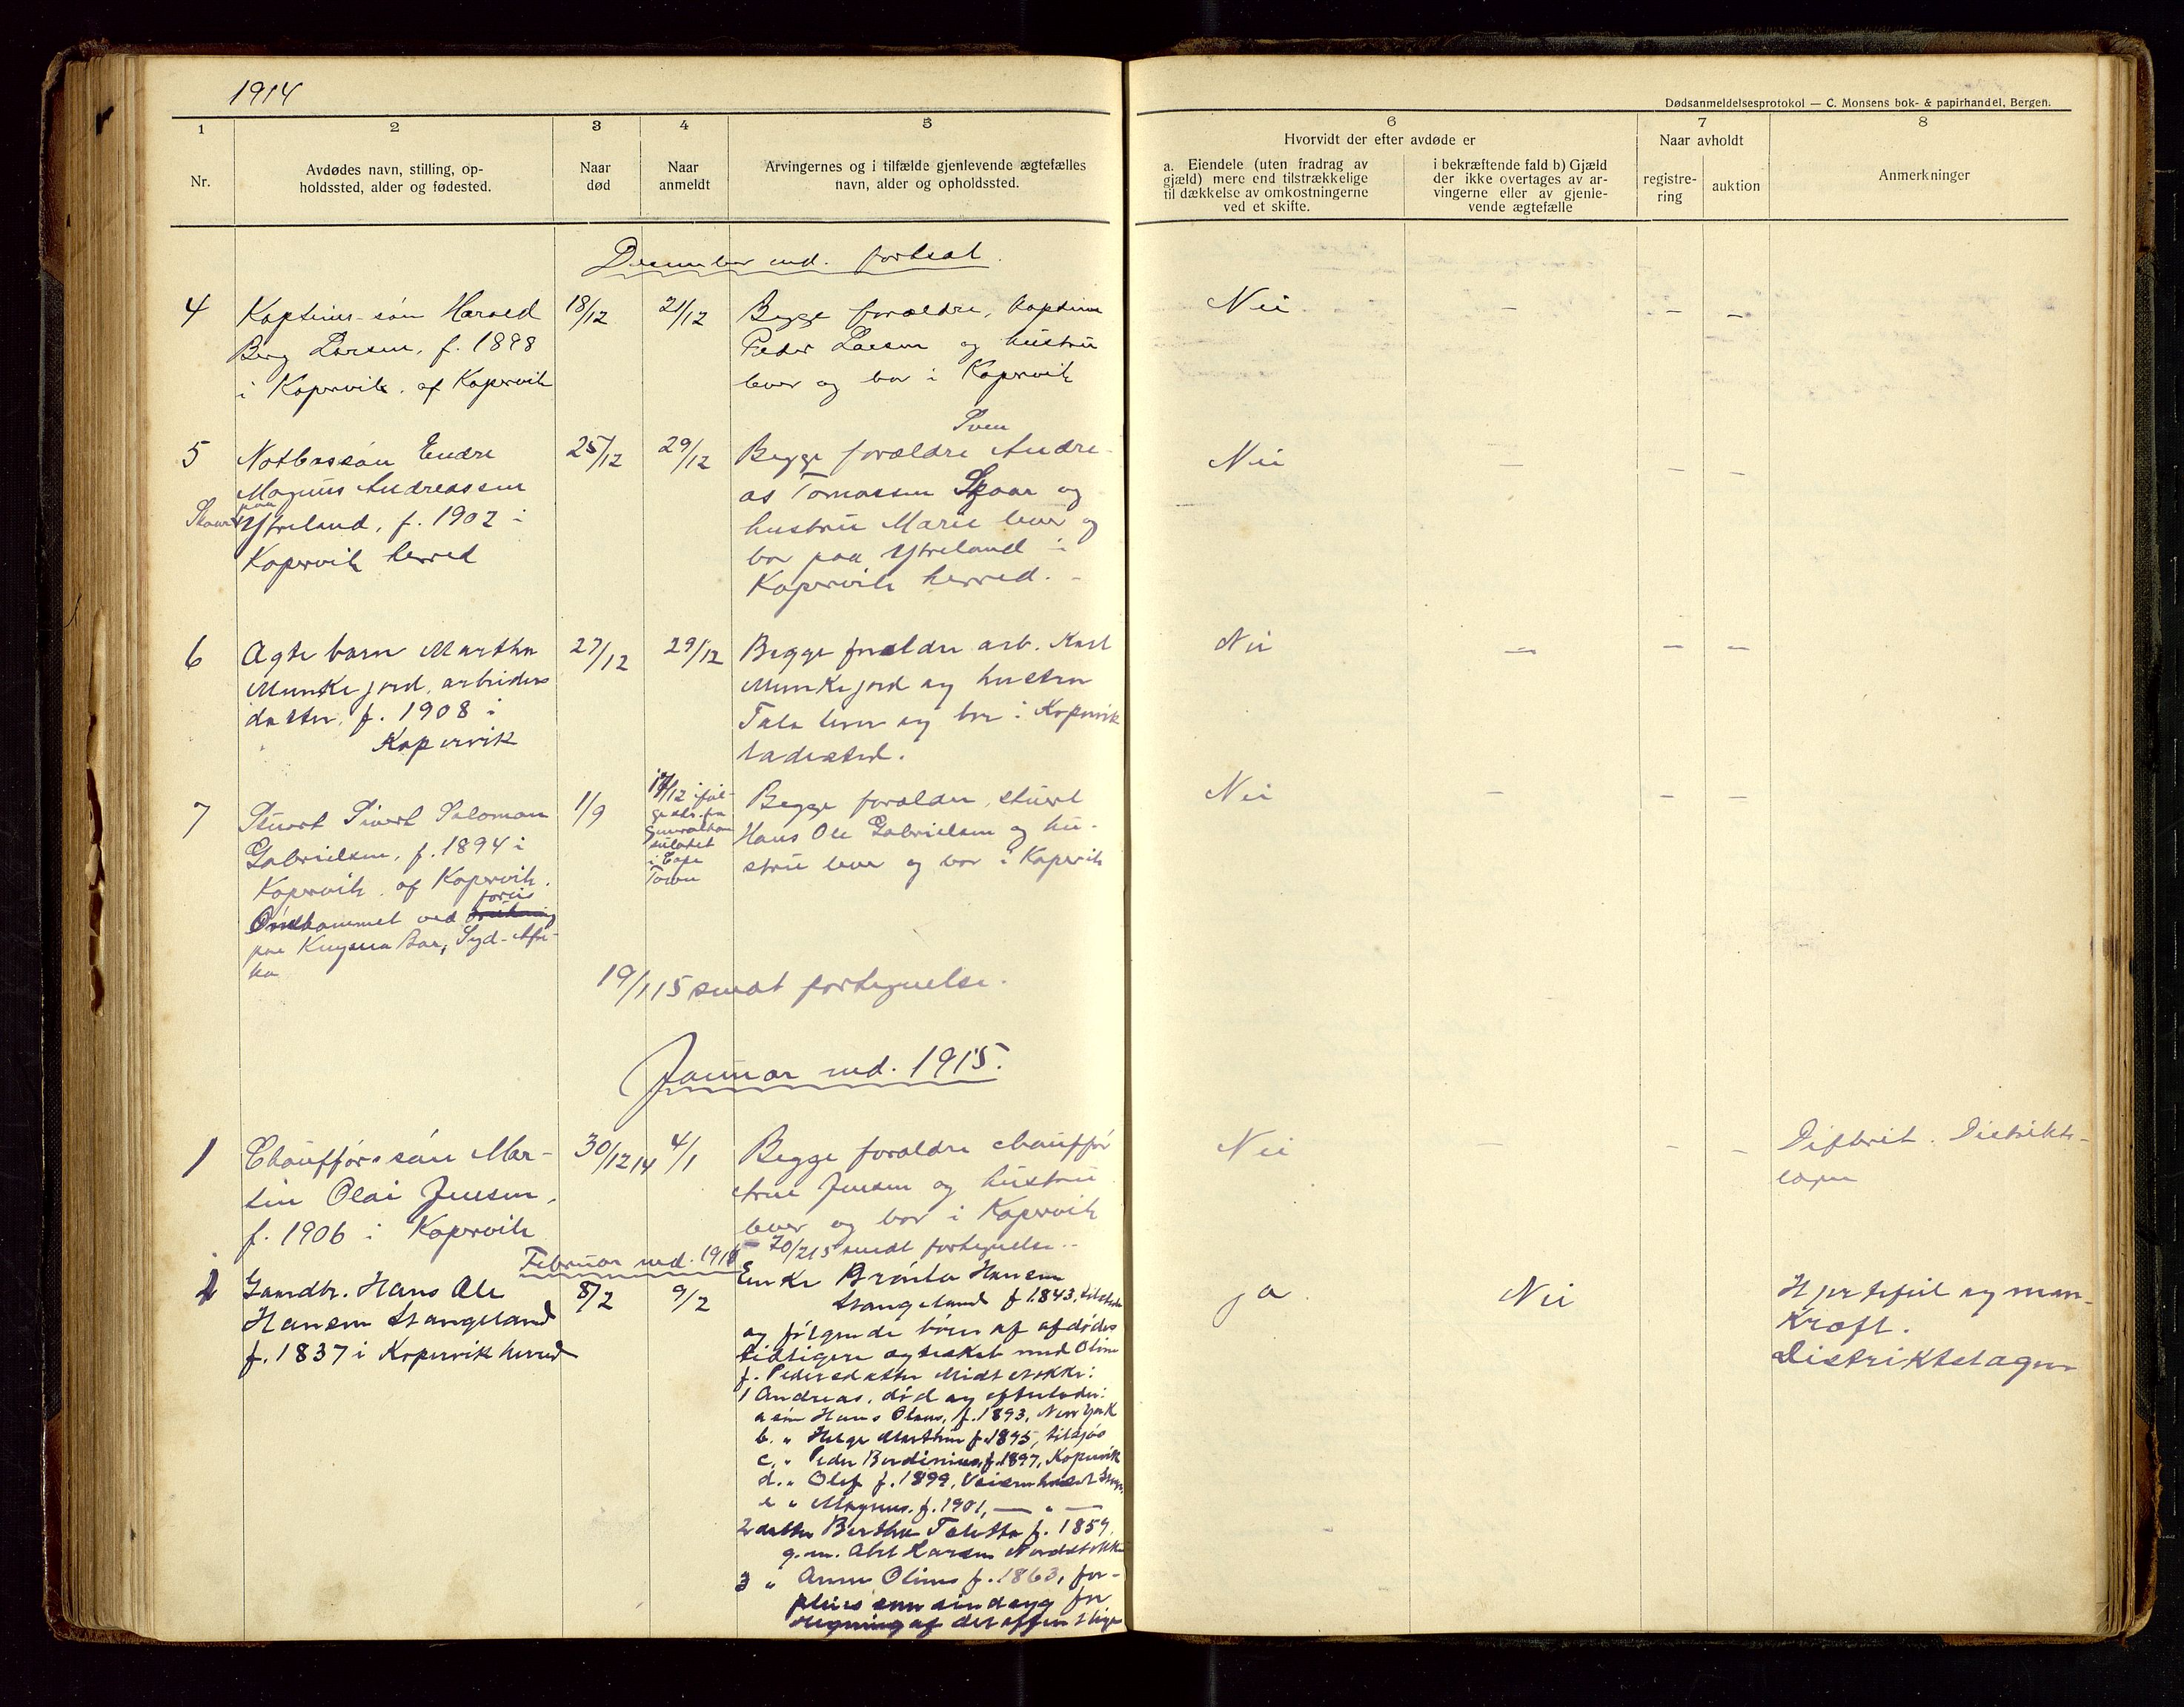 1914
Dødsanmeldelsesprotokol — C. Monsens bok- & papirhandel, Bergen.
1
2
3
4
5
6
7
8
Nr.
Avdødes navn, stilling, op-
holdssted, alder og fødested.
Naar
død
Naar
anmeldt
Arvingernes og i tilfælde gjenlevende ægtefælles
navn, alder og opholdssted.
Hvorvidt der efter avdøde er
a. Eiendele (uten fradrag av
gjæld) mere end tilstrækkelige
til dækkelse av omkostningerne
ved et skifte.
i bekræftende fald b) Gjæld
der ikke overtages av ar-
vingerne eller av gjenle-
vende ægtefælle
Naar avholdt
registre-
ring
auktion
Anmerkninger
December md. fortsat.
4
Kapteins søn Harald
Berg Larsen, f. 1898
i Kopervik. af Kopervik
18/12
21/12
Begge forældre, kaptein
Peder Larsen og hustru
lever og bor i Kopervik
Nei
—
—
—
5
Notbassøn Endre
Magnus Andreassen
Skaar paa
Ytreland, f. 1902 i
Kopervik herred
25/12
29/12
Sven
Begge forældre Andre-
as Tomassen Skaar og
hustru Marie lever og
bor paa Ytreland i
Kopervik herred. -
Nei
—
—
—
6
Ægte barn Martha
Munkejord, arbeiders
datter, f. 1908 i
Kopervik
27/12
29/12
Begge forældre arb. Karl
Munkejord og hustru
Tala lever og bor i Kopervik
ladested.
Nei
—
—
—
7
Stuert Sivert Salomon
Gabrielsen, f. 1894 i
Kopervik. af Kopervik.
forlis
Omkommet ved
paa Knysna Bar, Syd-Afri-
ka
1/9
17/12 iføl-
ge skr. fra
generalkon
sulatet
i Cape
Town
Begge forældre, stuert
Hans Ole Gabrielsen og hu-
stru lever og bor i Kopervik
Nei
—
—
—
19/1 15 sendt fortegnelse.
Januar md. 1915.
1
Chaufførs søn Mar-
tin Olai Jensen,
f. 1906 i Kopervik
30/12 14
4/1
Begge forældre chauffør
Jensen og hustru
lever og bor i Kopervik
Nei
—
—
—
Difterit. Distrikts-
lægen
20/2 15 sendt fortegnelse. -
Februar md. 1915
1
Gaardbr. Hans Ole
Hansen Stangeland
f. 1837 i Kopervik herred
8/2
9/2
Enke Brónla Hansen
Stangeland f 1843, tilstede
og følgende børn af afdødes
tidligere ægteskab med Oline
f. Pedersdatter Midtstokke:
1 Andreas, død og efterlader:
a søn Hans Olaus, f. 1893, New York
b. " Helge Marthin f. 1895, tilsjøs
c. " Peder Berdinius, f. 1897, Kopervik
d. " Olef f. 1899,
e " Magnus. f. 1901, — " —
2 datter Bertha Taletta f. 1859,
g. m. Abel Larsen Nordstokke
3 " Anne Oline f. 1863, for-
pleies som sindssyg for
regning af det offentlige
ja.
Nei
Hjertefeil og man-
kraft.
Distriktslægen